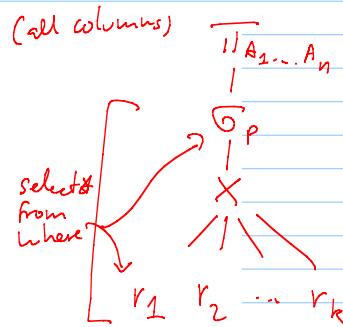 (all columns)
π A₁ ... Aₙ
σ P
×
select *
from
where
r₁ r₂ ... rₖ